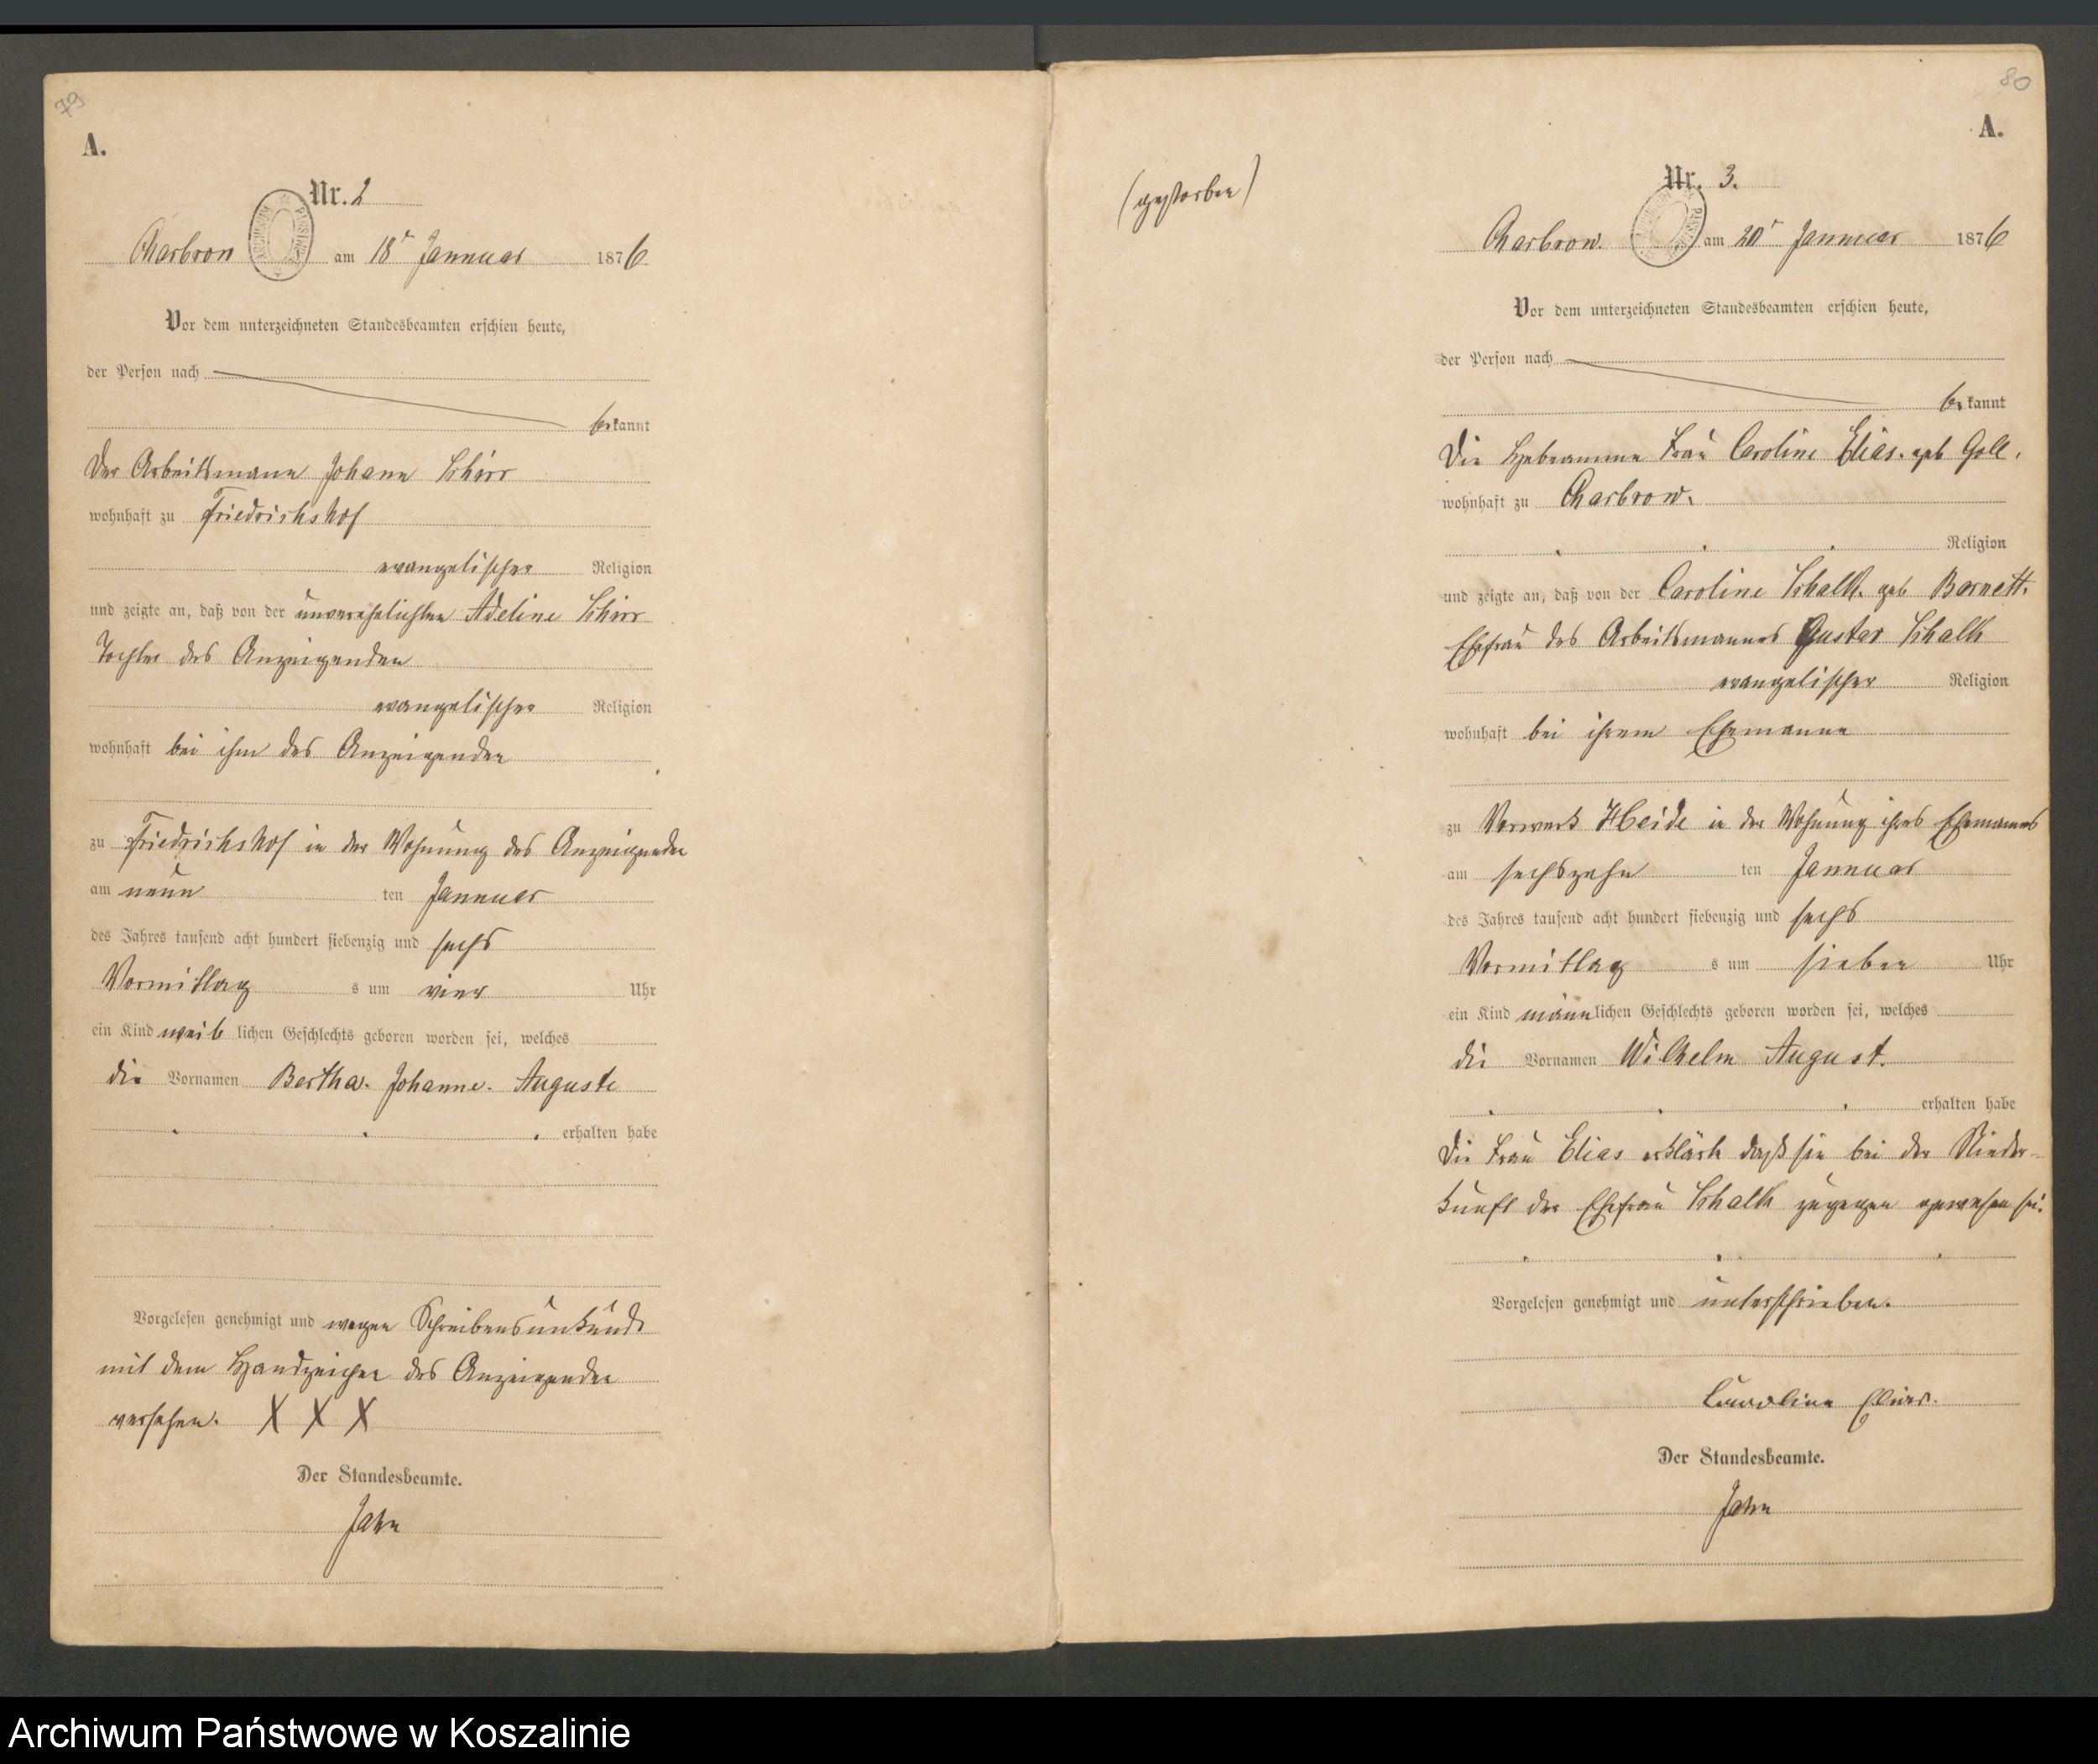 79
A.
Nr. 2
Charbrow am 18t Januar 1876
Vor dem unterzeichneten Standesbeamten erschien heute,
der Person nach
bekannt
Der Arbeitsmann Johann Schirr
wohnhaft zu Friedrichshof
evangelischer Religion
und zeigte an, daß von der unverehelichten Adeline Schirr
Tochter des Anzeigenden
evangelischer Religion
wohnhaft bei ihm des Anzeigenden
zu Friedrichshof in der Wohnung des Anzeigenden
am neun ten Januar
des Jahres tausend acht hundert siebenzig und sechs
Vormittag s um vier Uhr
ein Kind weib lichen Geschlechts geboren worden sei, welches
die Vornamen Bertha. Johanne. Auguste
erhalten habe
Vorgelesen genehmigt und wegen Schreibensunkunde
mit dem Handzeichen des Anzeigenden
versehen. X X X
Der Standesbeamte.
Jahn
80
A.
(gestorben)
Nr. 3.
Charbrow. am 20t Januar 1876
Vor dem unterzeichneten Standesbeamten erschien heute,
der Person nach
bekannt
Die Hebeamme Frau Caroline Elias. geb Goll.
wohnhaft zu Charbrow.
Religion
und zeigte an, daß von der Caroline Schalk. geb Barnett.
Ehefrau des Arbeitsmannes Gustav Schalk
evangelischer Religion
wohnhaft bei ihrem Ehemanne
zu Vorwerk Heide in der Wohnung ihres Ehemannes
am sechszehn ten Januar
des Jahres tausend acht hundert siebenzig und sechs
Vormittag s um sieben Uhr
ein Kind männlichen Geschlechts geboren worden sei, welches
die Vornamen Wilhelm August.
erhalten habe
Die Frau Elias erklärt daß sie bei der Nieder-
kunft der Ehefrau Schalk zugegen gewesen sei.
Vorgelesen genehmigt und unterschrieben.
Caroline Elias.
Der Standesbeamte.
Jahn
Archiwum Państwowe w Koszalinie